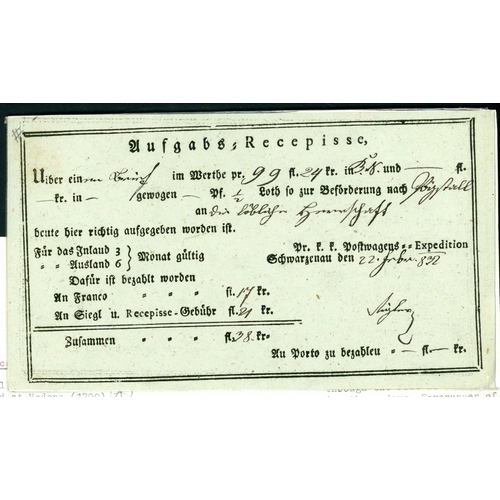 Aufgabs-Recepisse,
Uiber einem Brief im Werthe pr. 99 fl. 24 kr. in und — fl.
— kr. in — gewogen — Pf. ½ Loth so zur Beförderung nach
an die löbliche Herrschaft
heute hier richtig aufgegeben worden ist.
Für das Inland 3 } Monat gültig Pr. k. k. Postwagens-Expedition
„ „ Ausland 6 Schwarzenau den 22. 832
Dafür ist bezahlt worden
An Franco „ „ „ fl. 17 kr.
An Siegl u. Recepisse-Gebühr fl. 21 kr.
Zusammen „ „ „ fl. 38 kr.
An Porto zu bezahlen „ — fl. — kr.